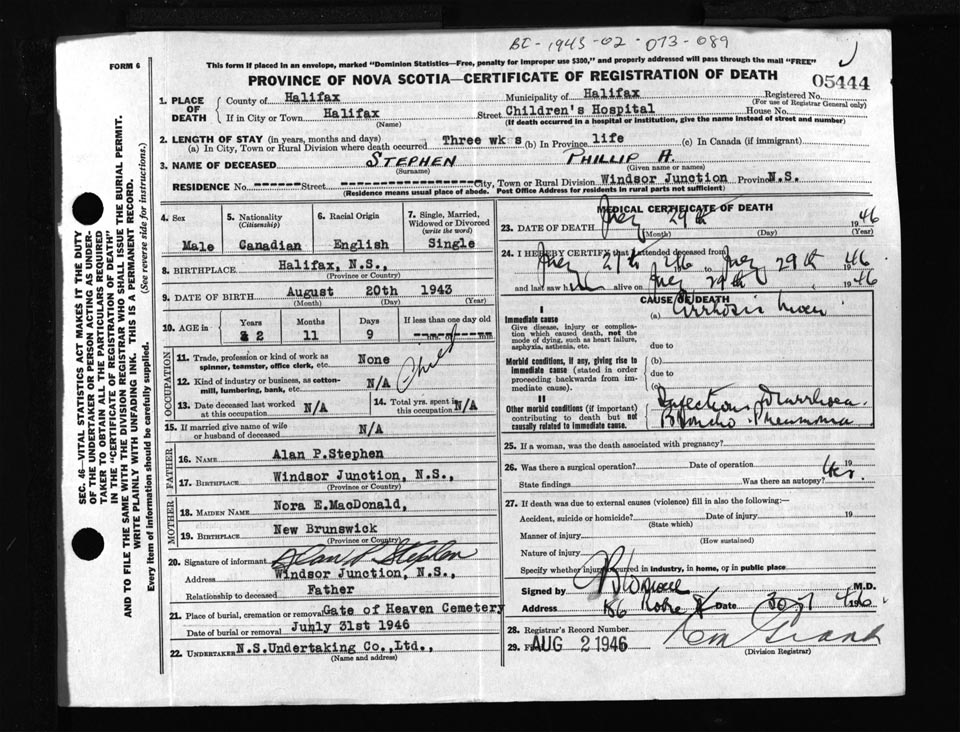 BC-1943-02-073-089
FORM 6
This form if placed in an envelope, marked "Dominion Statistics—Free, penalty for improper use $300," and properly addressed will pass through the mail "FREE"
PROVINCE OF NOVA SCOTIA—CERTIFICATE OF REGISTRATION OF DEATH
05444
1. PLACE OF DEATH
County of Halifax Municipality of Halifax Registered No.
(For use of Registrar General only)
If in City or Town Halifax Street Children's Hospital House No.
(Name) (If death occurred in a hospital or institution, give the name instead of street and number)
2. LENGTH OF STAY (in years, months and days)
(a) In City, Town or Rural Division where death occurred Three wks (b) In Province life (c) In Canada (if immigrant)
3. NAME OF DECEASED STEPHEN PHILLIP A.
(Surname) (Given name or names)
RESIDENCE No. ------- Street City, Town or Rural Division Windsor Junction Province N.S.
(Residence means usual place of abode. Post Office Address for residents in rural parts not sufficient)
4. Sex
Male
5. Nationality
(Citizenship)
Canadian
6. Racial Origin
English
7. Single, Married, Widowed or Divorced
(write the word)
Single
8. BIRTHPLACE Halifax, N.S.,
(Province or Country)
9. DATE OF BIRTH August 20th 1943
(Month) (Day) (Year)
10. AGE in
Years Months Days If less than one day old
2 11 9 hrs. or min.
OCCUPATION
11. Trade, profession or kind of work as spinner, teamster, office clerk, etc. None
12. Kind of industry or business, as cotton-mill, lumbering, bank, etc. N/A
Child
13. Date deceased last worked at this occupation N/A
14. Total yrs. spent in this occupation N/A
15. If married give name of wife or husband of deceased N/A
FATHER
16. NAME Alan P.Stephen
17. BIRTHPLACE Windsor Junction, N.S.,
(Province or Country)
MOTHER
18. MAIDEN NAME Nora E.MacDonald,
19. BIRTHPLACE New Brunswick
(Province or Country)
20. Signature of informant Alan P Stephen
Address Windsor Junction, N.S.,
Relationship to deceased Father
21. Place of burial, cremation or removal Gate of Heaven Cemetery
Date of burial or removal Junly 31st 1946
22. UNDERTAKER N.S.Undertaking Co.,Ltd.,
(Name and address)
MEDICAL CERTIFICATE OF DEATH
23. DATE OF DEATH July 29th 1946
(Month) (Day) (Year)
24. I HEREBY CERTIFY that I attended deceased from
July 46 to July 29th 1946
and last saw h alive on July 29th 1946
CAUSE OF DEATH
I
Immediate cause
Give disease, injury or complication which caused death, not the mode of dying, such as heart failure, asphyxia, asthenia, etc.
(a) Cirrhosis Liver
due to
Morbid conditions, if any, giving rise to immediate cause (stated in order proceeding backwards from immediate cause).
(b)
due to
(c)
II
Other morbid conditions (if important) contributing to death but not causally related to immediate cause.
Infectious Diarrhoea
Broncho-Pneumonia
25. If a woman, was the death associated with pregnancy?
26. Was there a surgical operation? Date of operation 19
State findings Was there an autopsy? Yes.
27. If death was due to external causes (violence) fill in also the following:—
Accident, suicide or homicide? Date of injury 19
(State which)
Manner of injury
(How sustained)
Nature of injury
Specify whether injury occurred in industry, in home, or in public place
Signed by M.D.
Address 186 Date 30-7 1946
28. Registrar's Record Number
29. AUG 2 1946
(Division Registrar)
SEC. 46—VITAL STATISTICS ACT MAKES IT THE DUTY
OF THE UNDERTAKER OR PERSON ACTING AS UNDER-
TAKER TO OBTAIN ALL THE PARTICULARS REQUIRED
IN THE "CERTIFICATE OF REGISTRATION OF DEATH"
AND TO FILE THE SAME WITH THE DIVISION REGISTRAR WHO SHALL ISSUE THE BURIAL PERMIT.
WRITE PLAINLY WITH UNFADING INK. THIS IS A PERMANENT RECORD.
Every item of information should be carefully supplied. (See reverse side for instructions.)